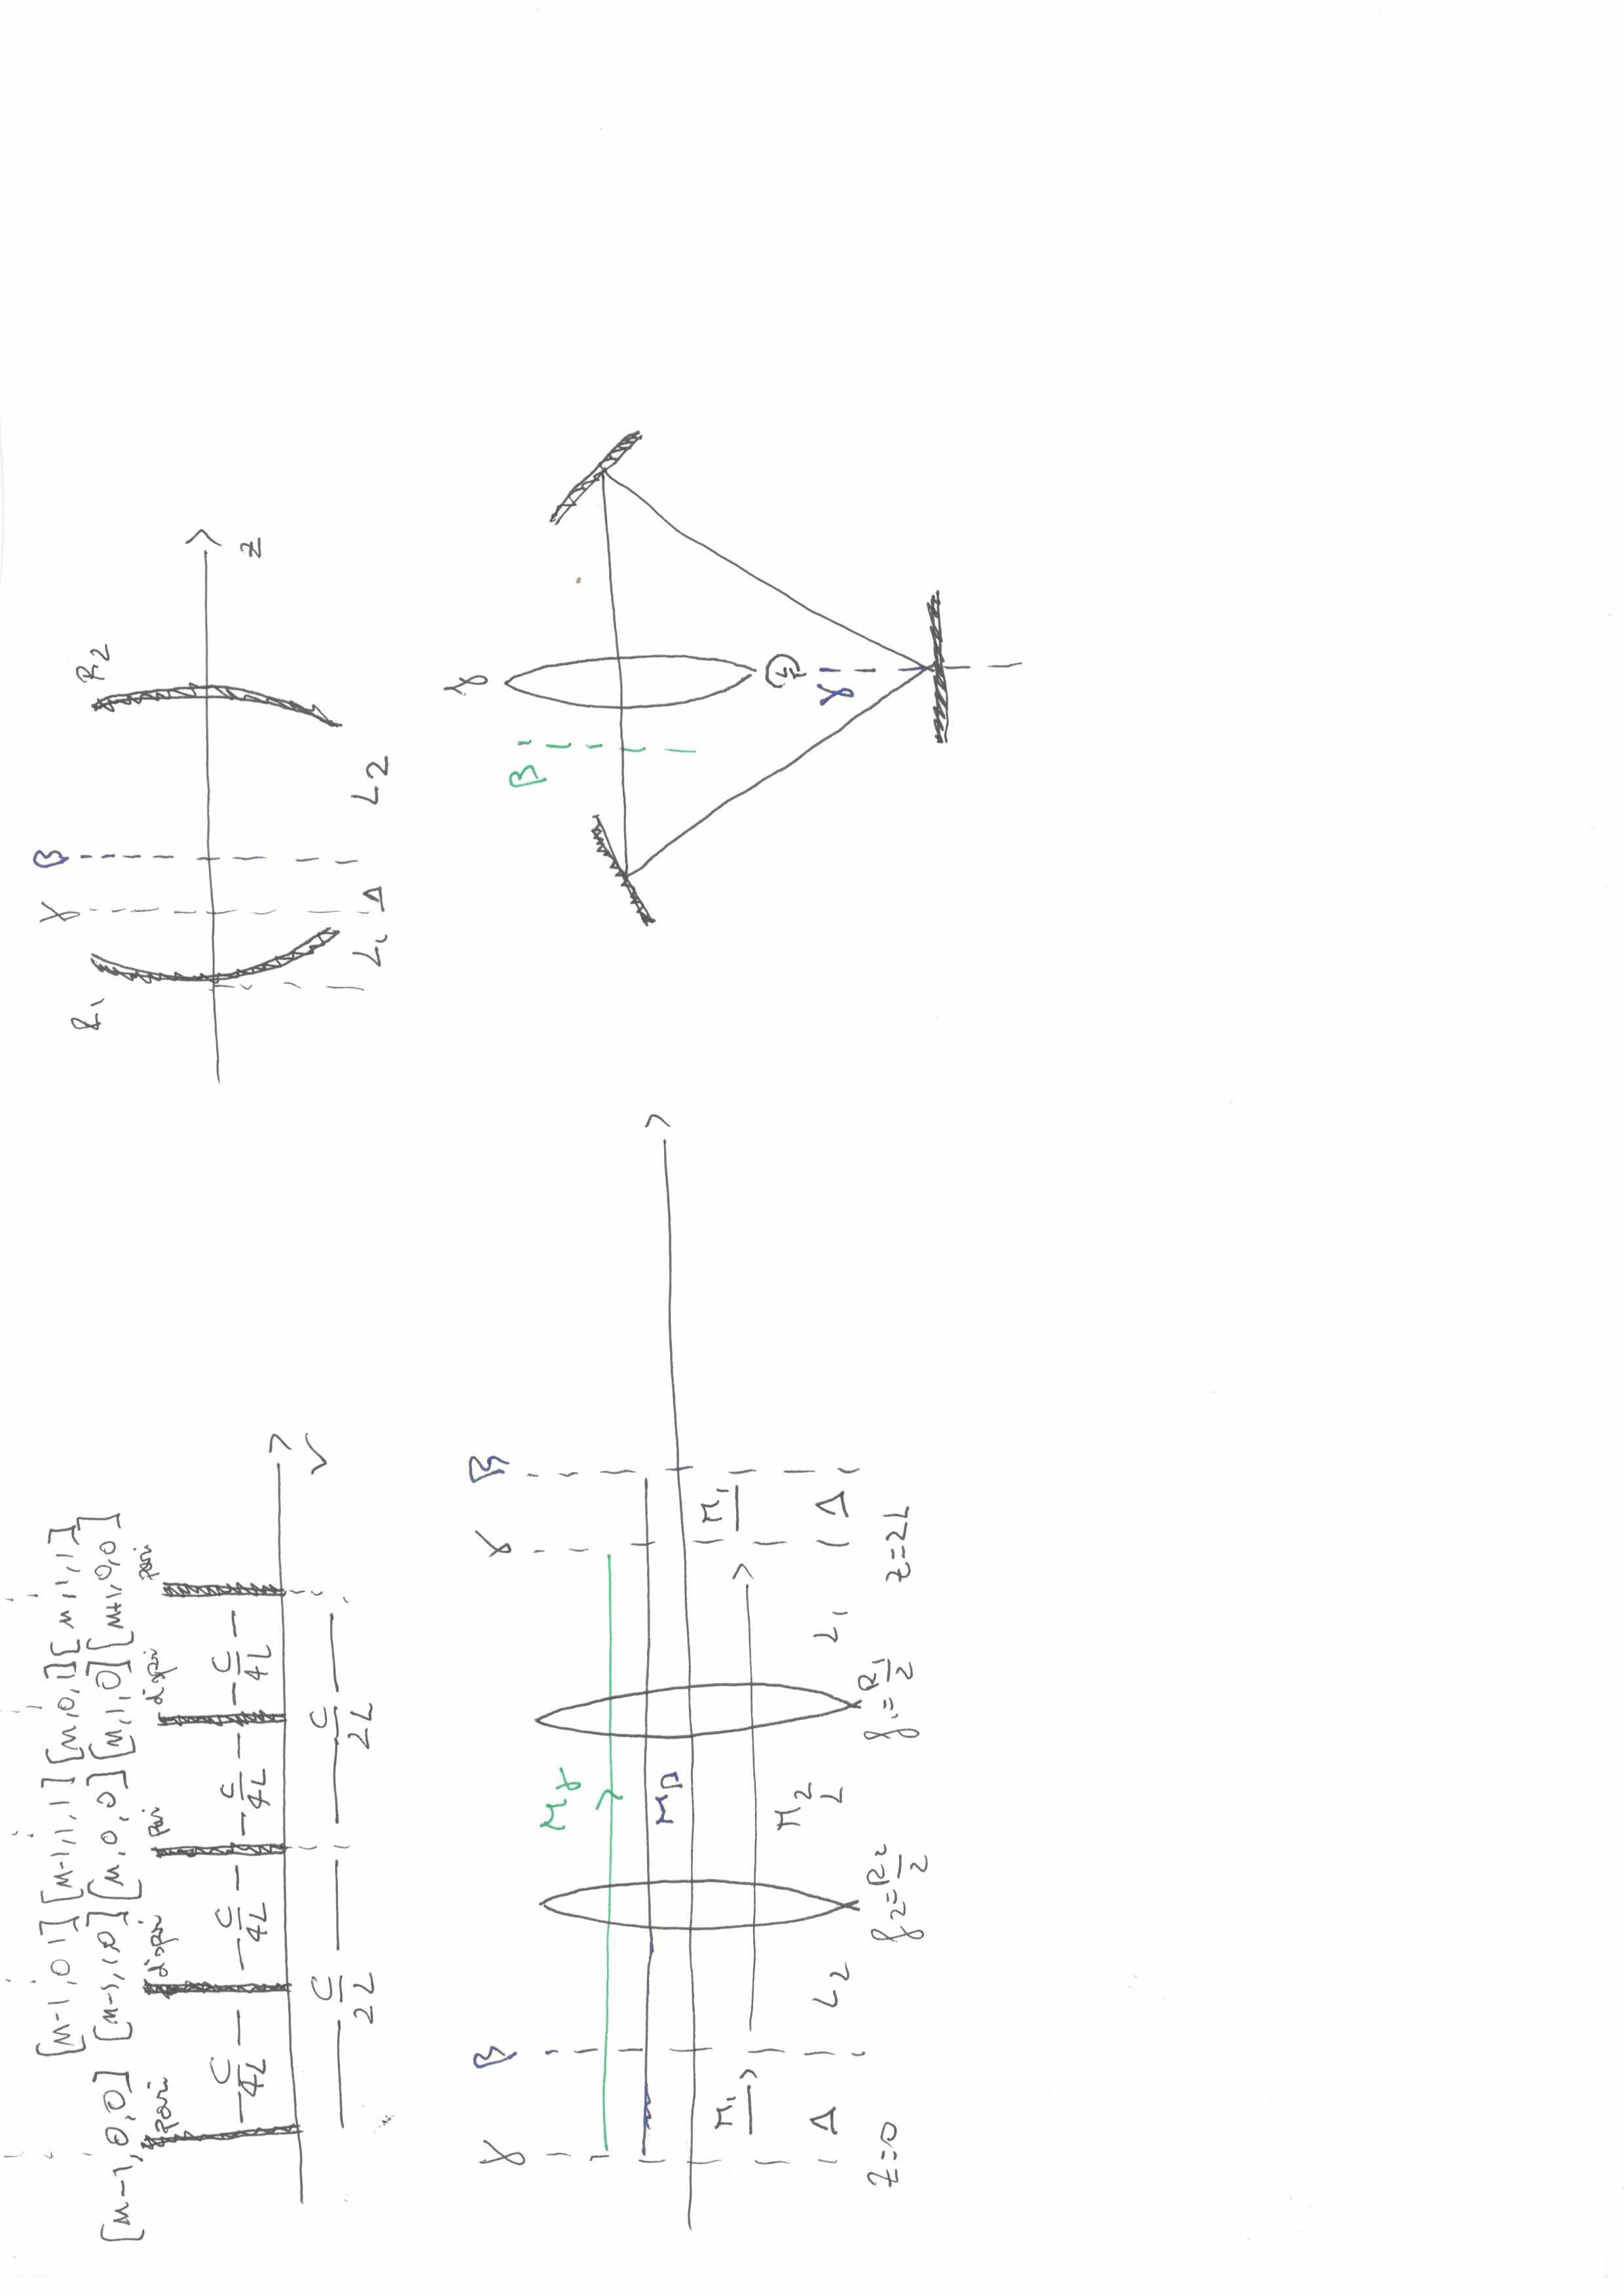 [n-1,0 1] [n-1,1,1] [n,0,1] [n,1,1]
[n-1,0,0] [n-1,1,0] [n,0,0] [n,1,0] [n+1,0,0]
pari dispri pari dispri pari
C/4L C/4L C/4L C/4L
ν
C/2L C/2L
γ β
R₁ R₂
z
L₁ Δ L₂
γ β γ β
M_γ
M_β
M₁ M₁
M₂
Δ L₂ L L₁ Δ
z=0 f₂=R₂/2 f₁=R₁/2 z=2L
γ
β
γ